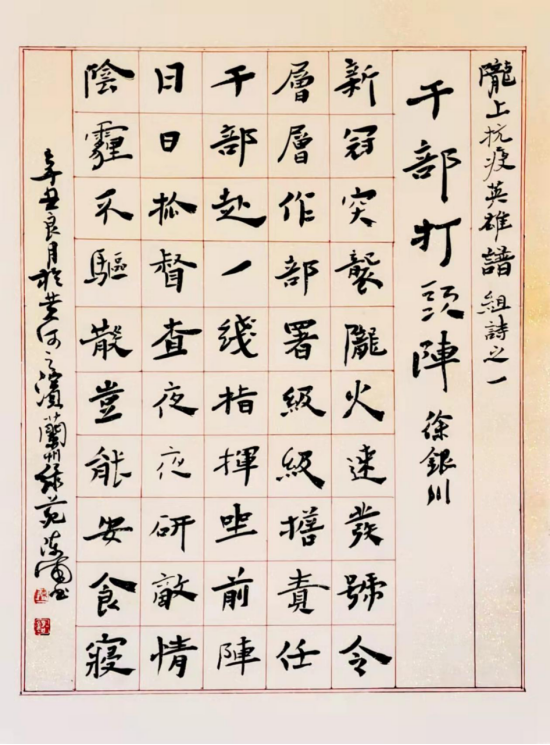 隴上抗疫英雄譜 組詩之一
干部打頭陣 徐銀川
新冠突襲隴火速發號令
層層作部署級級擔責任
干部赴一綫指揮坐前陣
日日抓督查夜夜研敵情
陰霾不驅散豈能安食寢
辛丑良月於黃河之濱蘭州綠苑